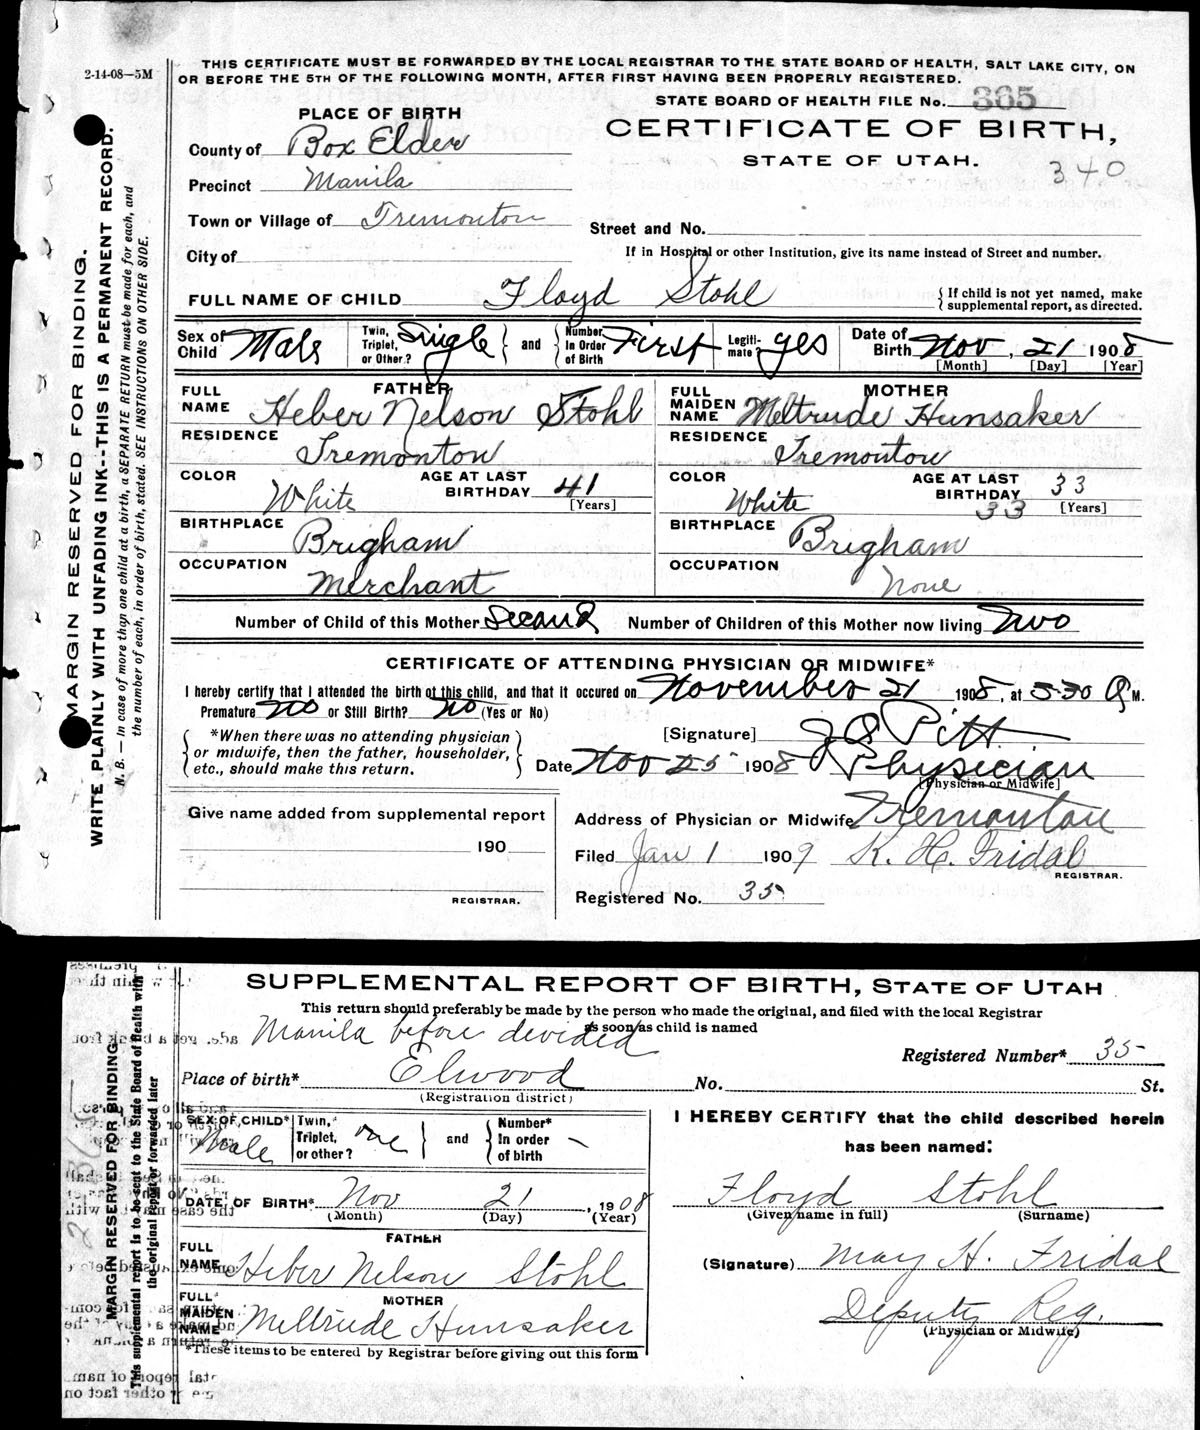 2-14-08—5M
THIS CERTIFICATE MUST BE FORWARDED BY THE LOCAL REGISTRAR TO THE STATE BOARD OF HEALTH, SALT LAKE CITY, ON
OR BEFORE THE 5TH OF THE FOLLOWING MONTH, AFTER FIRST HAVING BEEN PROPERLY REGISTERED.
STATE BOARD OF HEALTH FILE No. 365
PLACE OF BIRTH
CERTIFICATE OF BIRTH,
STATE OF UTAH.
340
County of Box Elder
Precinct Manila
Town or Village of Tremonton
Street and No.
City of
If in Hospital or other Institution, give its name instead of Street and number.
FULL NAME OF CHILD Floyd Stohl { If child is not yet named, make
supplemental report, as directed.
Sex of Child Male Twin, Triplet, or Other? Single } and { Number In Order of Birth First Legiti-mate? yes Date of Birth Nov, 21 1908
[Month] [Day] [Year]
FATHER
FULL NAME Heber Nelson Stohl
RESIDENCE Tremonton
COLOR White AGE AT LAST BIRTHDAY 41 [Years]
BIRTHPLACE Brigham
OCCUPATION Merchant
MOTHER
FULL MAIDEN NAME Meltrude Hunsaker
RESIDENCE Tremonton
COLOR White AGE AT LAST BIRTHDAY 33 33 [Years]
BIRTHPLACE Brigham
OCCUPATION None
Number of Child of this Mother Second Number of Children of this Mother now living Two
CERTIFICATE OF ATTENDING PHYSICIAN OR MIDWIFE*
I hereby certify that I attended the birth of this child, and that it occured on November 21 1908, at 530 A M.
Premature No or Still Birth? No (Yes or No)
{ *When there was no attending physician
or midwife, then the father, householder,
etc., should make this return. }
[Signature] Pitt
Date Nov 25 1908 Physician
[Physician or Midwife]
Give name added from supplemental report
190
REGISTRAR.
Address of Physician or Midwife Tremonton
Filed Jan 1 1909 K. H. Fridal
REGISTRAR.
Registered No. 35
MARGIN RESERVED FOR BINDING.
WRITE PLAINLY WITH UNFADING INK--THIS IS A PERMANENT RECORD.
N. B. — In case of more than one child at birth, a SEPARATE RETURN must be made for each, and
the number of each, in order of birth, stated. SEE INSTRUCTIONS ON OTHER SIDE.
SUPPLEMENTAL REPORT OF BIRTH, STATE OF UTAH
This return should preferably be made by the person who made the original, and filed with the local Registrar
as soon as child is named
Manila before devided
Registered Number* 35
Place of birth* Elwood No. St.
(Registration district)
SEX OF CHILD* Male Twin, Triplet, or other? one } and { Number* In order of birth –
DATE OF BIRTH* Nov 21, 1908
(Month) (Day) (Year)
FATHER
FULL NAME Heber Nelson Stohl
MOTHER
FULL MAIDEN NAME Meltrude Hunsaker
*These items to be entered by Registrar before giving out this form
I HEREBY CERTIFY that the child described herein
has been named:
Floyd Stohl
(Given name in full) (Surname)
(Signature) May H. Fridal
Deputy Reg.
(Physician or Midwife)
MARGIN RESERVED FOR BINDING.
This supplemental report is to be sent to the State Board of Health with
the original report or forwarded later